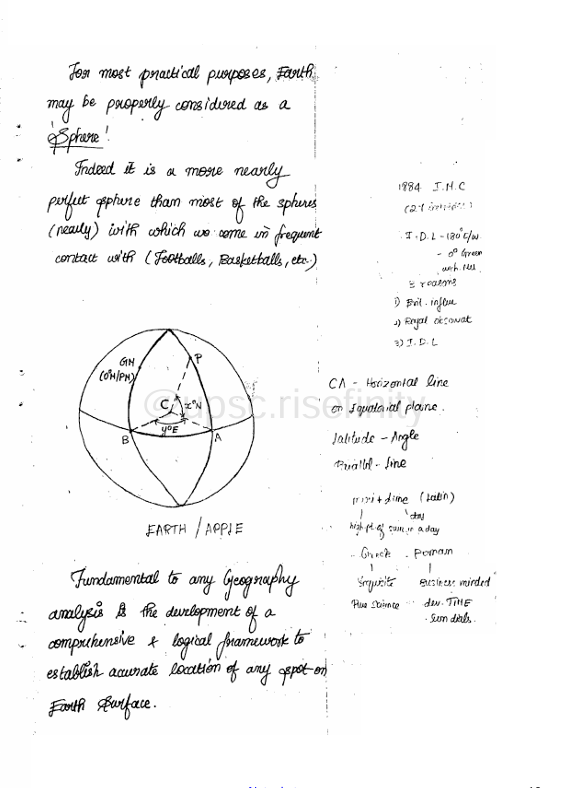 For most practical purposes, Earth
may be properly considered as a
Sphere!
Indeed it is a more nearly
perfect sphere than most of the spheres
(nearly) with which we come in frequent
contact with (Footballs, Basketballs, etc.)
GM
(0M/PM)
P
C
x°N
y°E
B
A
EARTH / APPLE
Fundamental to any Geography
analysis is the development of a
comprehensive & logical framework to
establish accurate location of any spot on
Earth Surface.
1884 I.M.C
I.D.L - 180°E/W
- 0° Green
wich. Mer
3 reasons
1) Brit. influe
2) Royal obsorvat
3) I.D.L
CA - Horizontal line
on Equatorial plane.
Latitude - Angle
Parallel - line
meri + dime (Latin)
day
high pt. of sun in a day
Greek Roman
Business minded
Pure Science dev. TIME
- Sun dials.
@upsc.risefinity